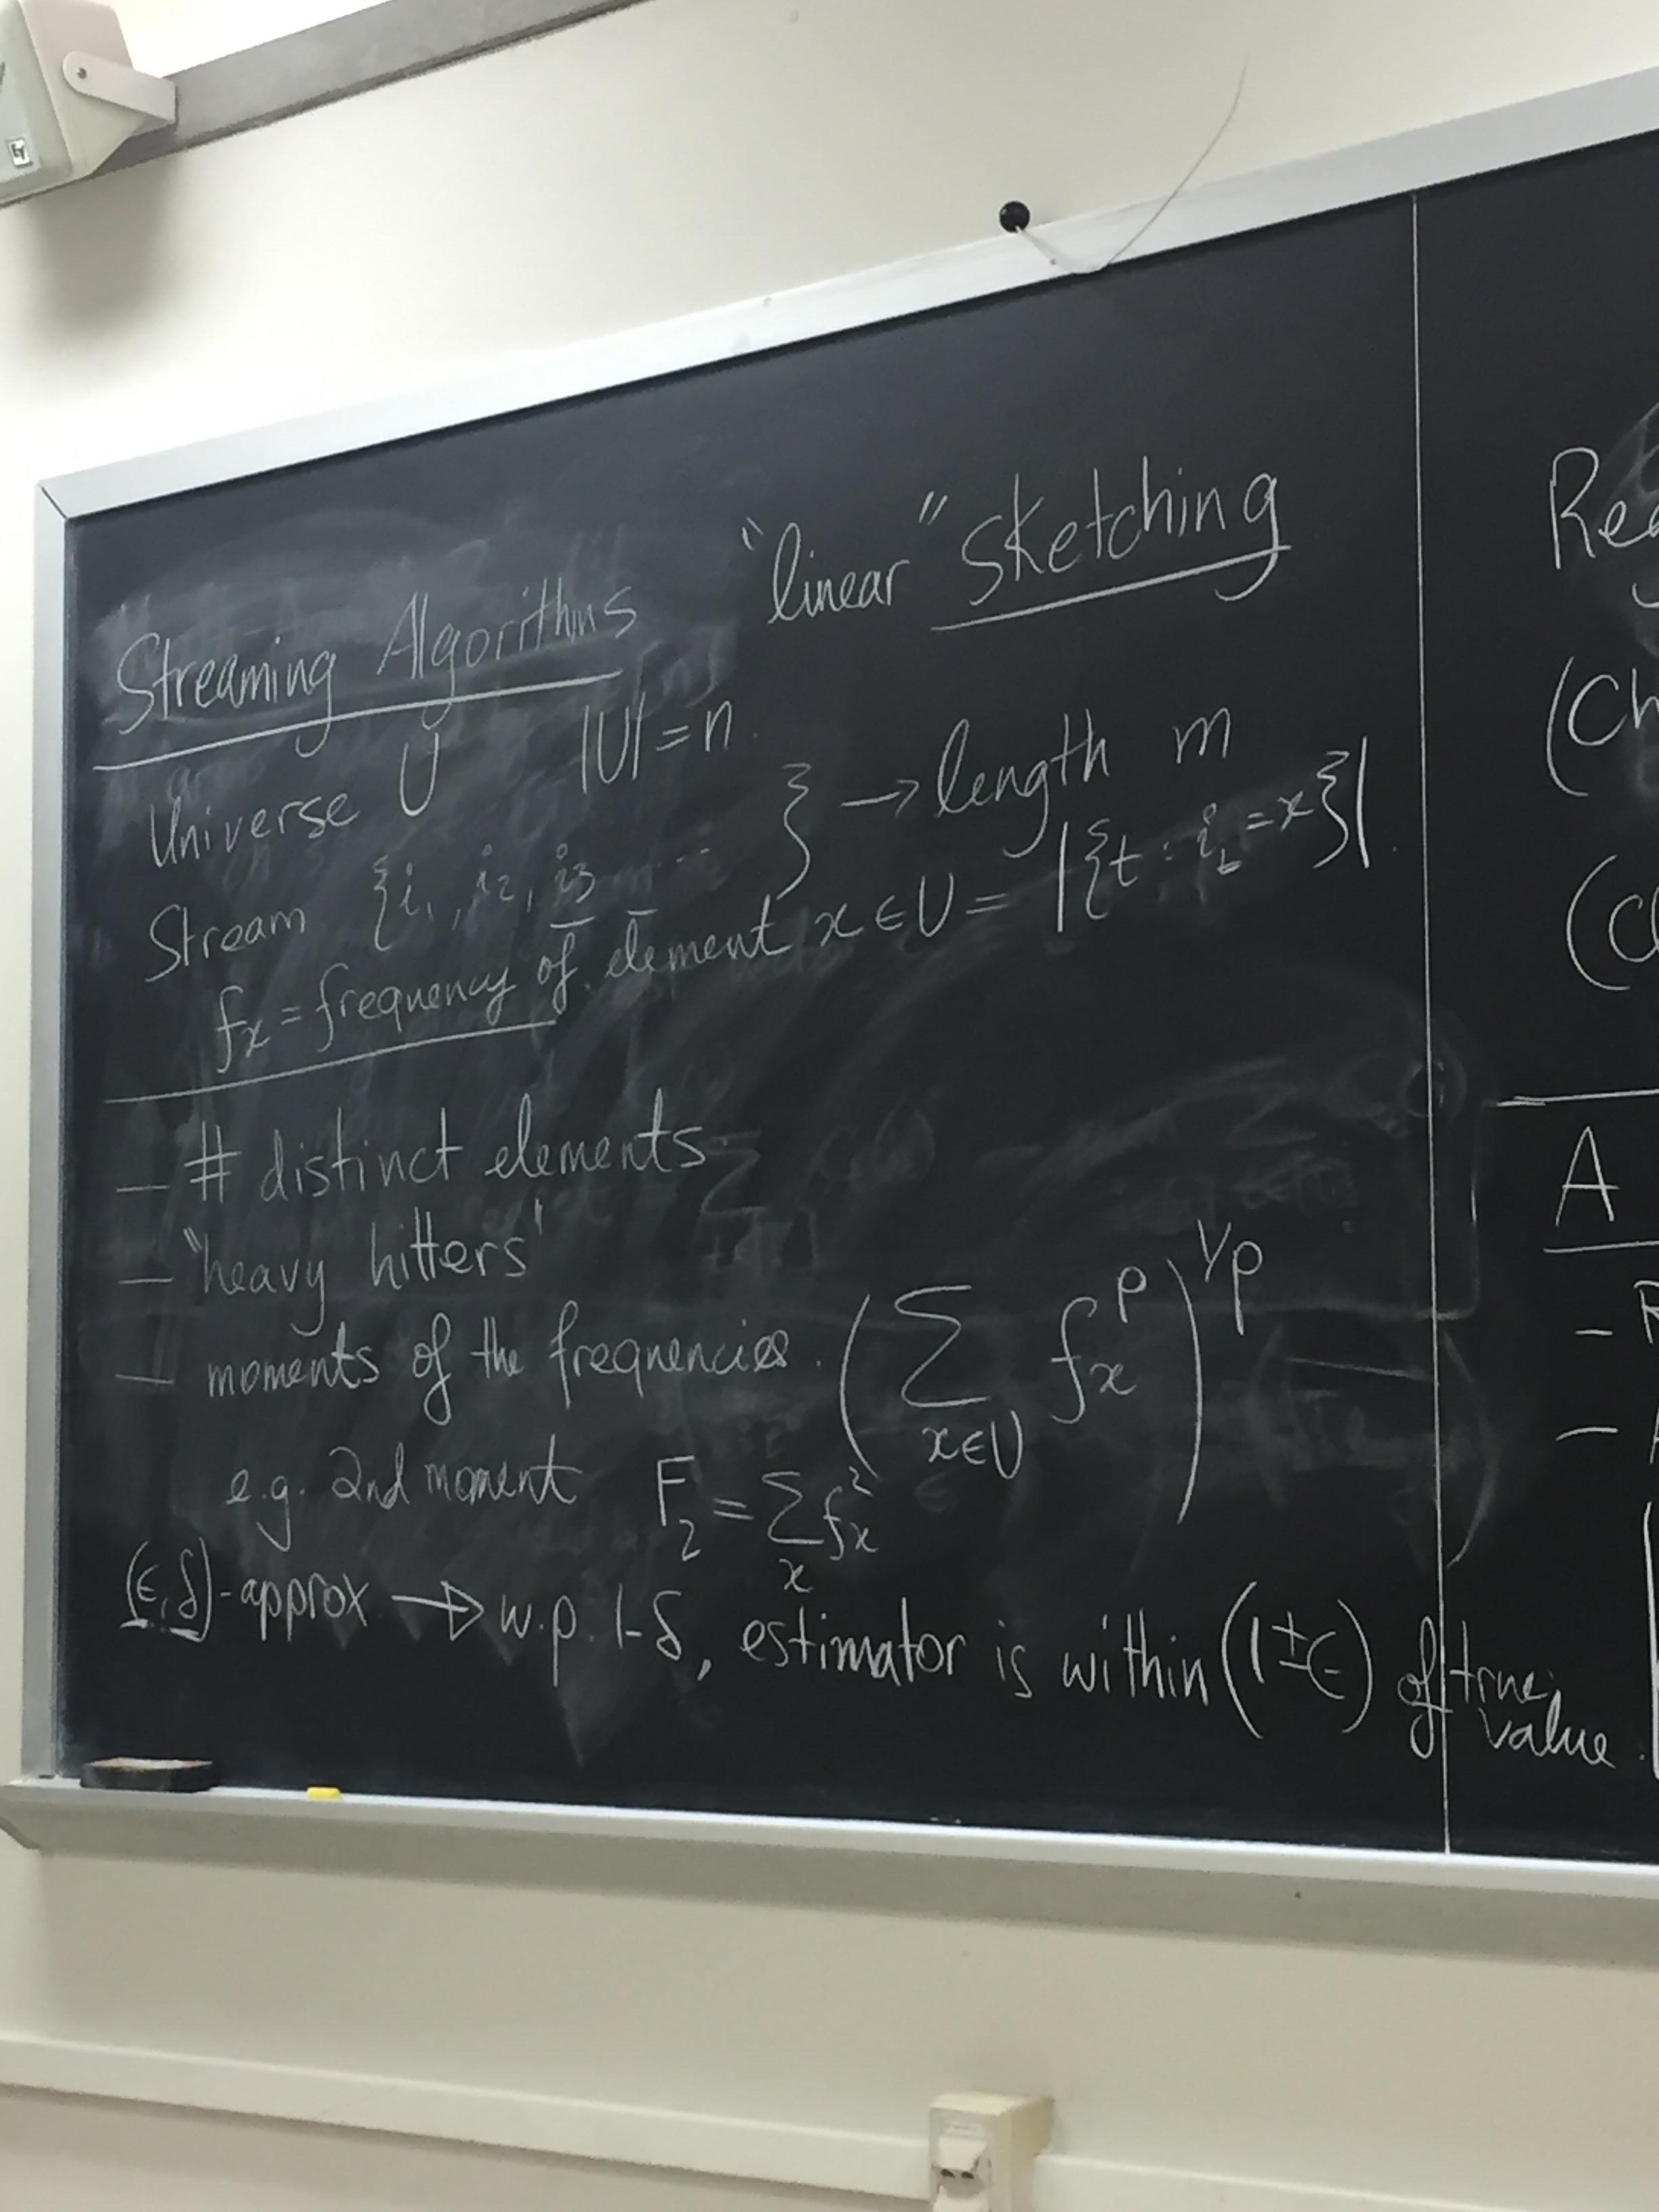 Streaming Algorithms "linear" sketching
Universe U |U| = n.
Stream {i₁, i₂, i₃ ... } → length m
fₓ = frequency of element x ∈ U = |{t : iₜ = x}|.
– # distinct elements
– "heavy hitters"
– moments of the frequencies. (∑_{x∈U} fₓᵖ)^{1/p}
e.g. 2nd moment F₂ = ∑ₓ fₓ²
(ϵ, δ)-approx → w.p. 1-δ, estimator is within (1±ϵ) of true
value.
(Ch
A